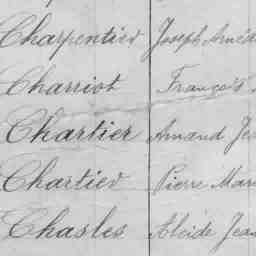 Charpentier Joseph Améd
Charriot François
Chartier Amand Jea
Chartier Pierre Mari
Chasles Alcide Jean